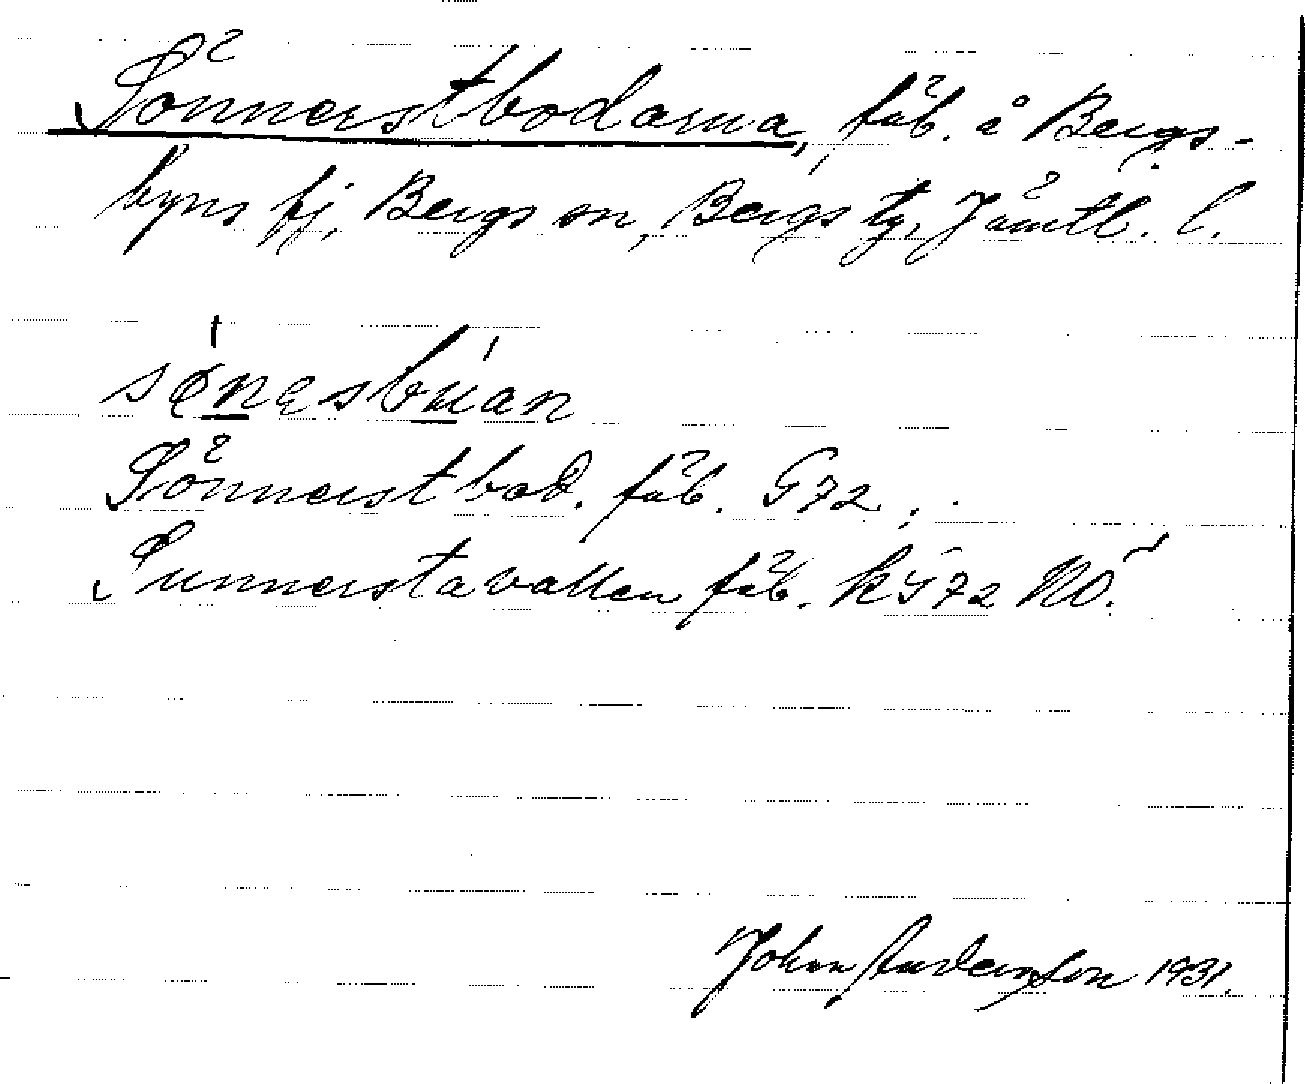 Sönnerstbodarna, fäb. å Bergs-
byns fj, Bergs sn, Bergs tg, Jämtl. l.
Sönnerst bod. fäb. G72.
Sunnerstavallen fäb. KG72 NO.
John Anderzson 1931.